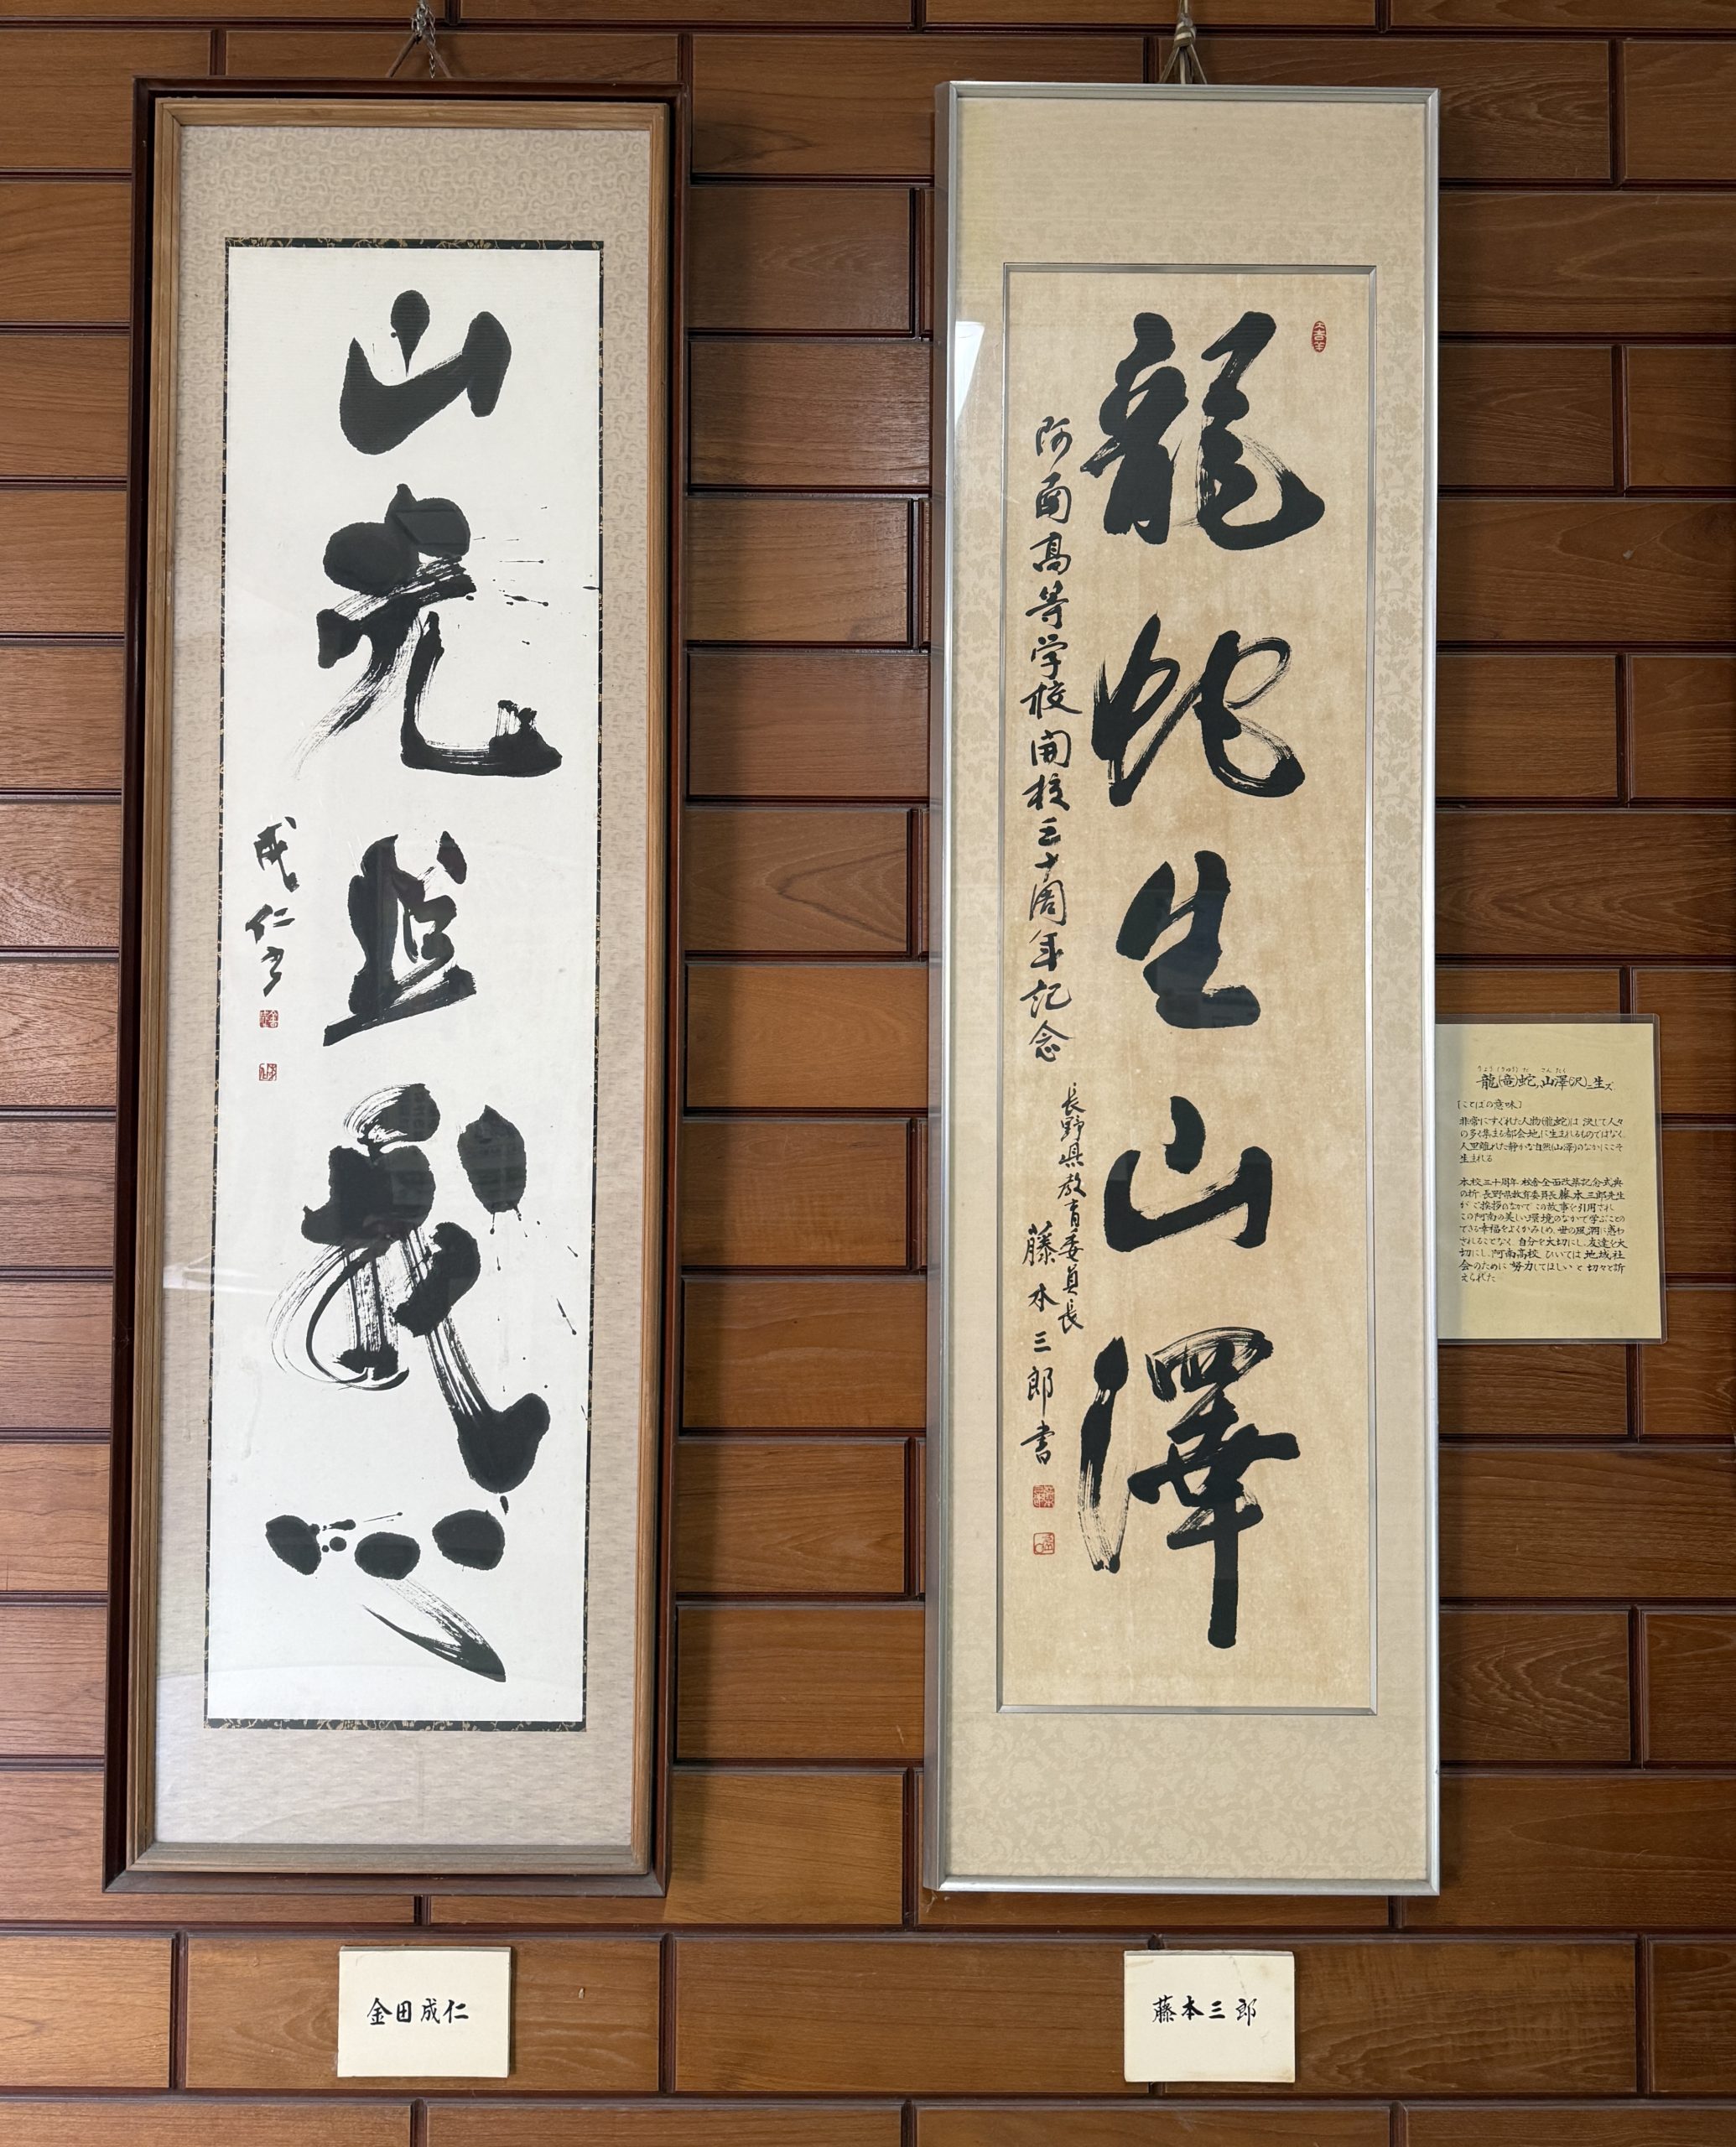 山光照我心
成仁書
金田成仁
龍蛇生山澤
阿南高等学校開校三十周年記念
長野県教育委員長
藤本三郎書
藤本三郎
りょう(りゅう)だ さんたく
龍(竜)蛇、山澤(沢)ニ生ズ
[ことばの意味]
非常にすぐれた人物(龍蛇)は 決して人々
の多く集まる都会地に生まれるものではなく、
人里離れた静かな自然(山澤)のなかにこそ
生まれる
本校三十周年 校舎全面改築記念式典
の折、長野県教育委員長藤本三郎先生
が ご挨拶のなかで この故事を引用され
この阿南の美しい環境のなかで学ぶことの
できる幸福をよくかみしめ、世の風潮に惑わ
されることなく、自分を大切にし、友達を大
切にし、阿南高校、ひいては 地域社
会のために 努力してほしい と 切々と訴
えられた